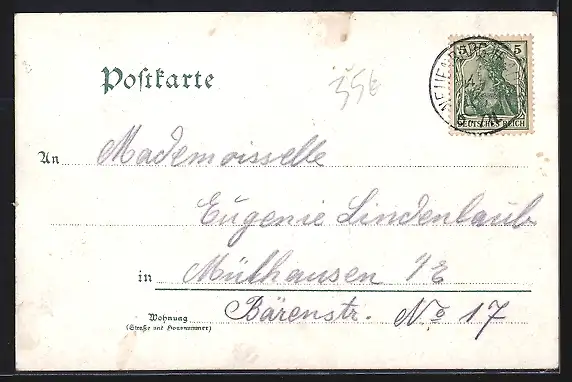 Postkarte
35€
5
DEUTSCHES REICH
An Mademoisselle
Eugenie Lindenlaub
in Mülhausen i/E
Bärenstr. No 17
Wohnung
(Straße und Hausnummer)